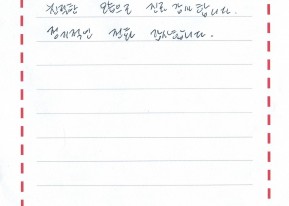 친절한 모습으로 진료 감사합니다.
정기적인 전화 감사합니다.